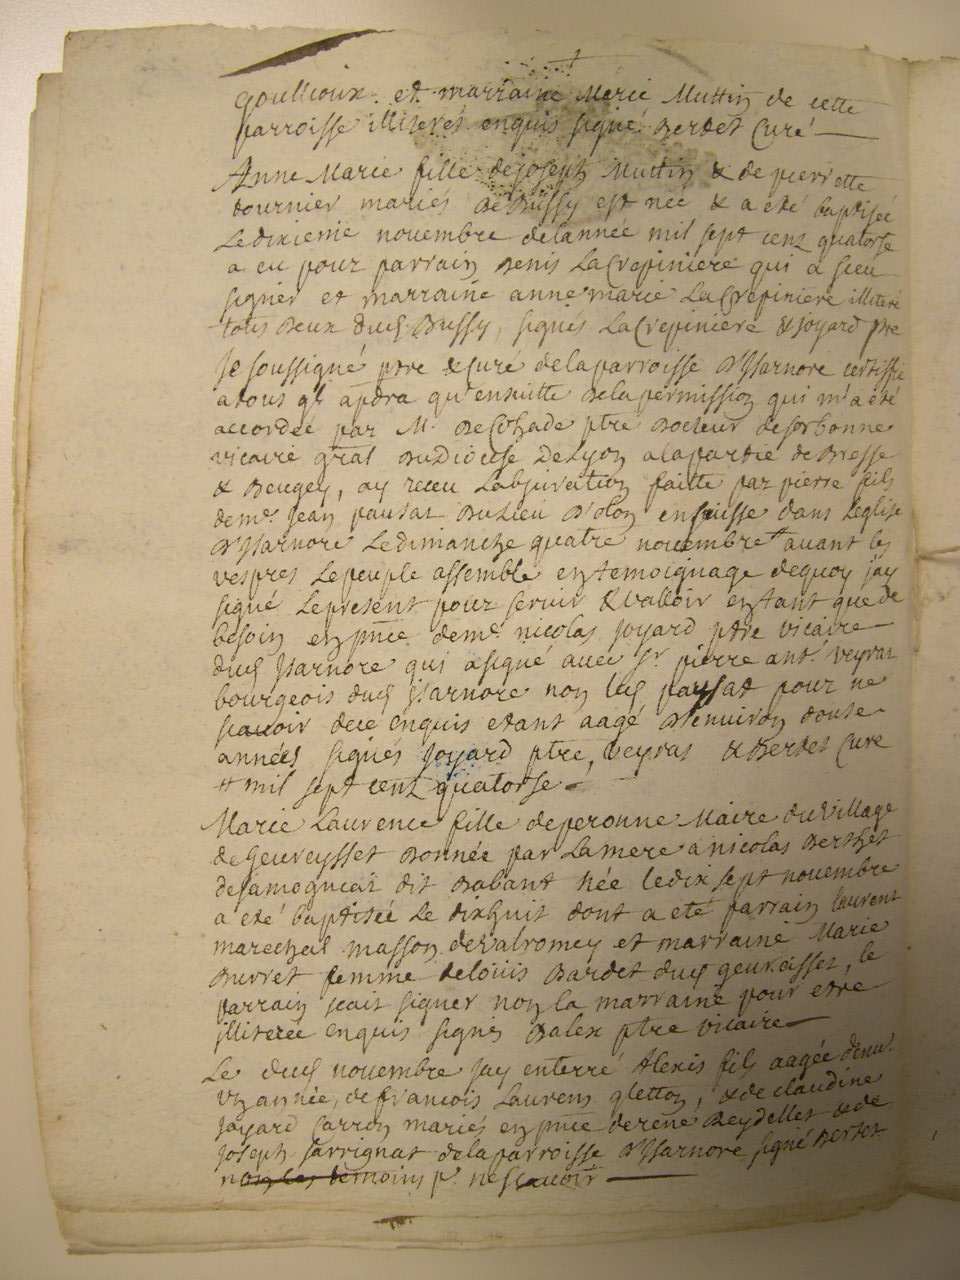 goullioux et marraine Merie Muttin de cette
parroisse illiterés enquis signé Berdet Curé
Anne Marie fille de joseph Muttin & de pierrette
tournier mariés De Bussy est née & a été baptisée
Le dixieme novembre de lannée mil sept cenz quatorse
a eu pour parrain Denis La Crepiniere qui a sceu
signer et marraine anne marie La Crepiniere illiteré
tous Deux dud. Bussy, signés La Crepiniere & joyard ptre
Je soussigné ptre & curé de la parroisse D'Isarnore certiffie
a tous ql apdra qu'ensuitte De la permission qui m'a été
accordée par M. De Cohade ptre Docteur de sorbonne
vicaire gnal Du Diocese De Lyon a la partie de Bresse
& Beugey, ay receu Labjuration faitte par pierre fils
de mr. Jean pausat Du Lieu D'olon en suisse dans Leglise
D'Isarnore Le dimanche quatre novembre # auant les
vespres Le peuple assemblé en temoignage de quoy jay
signé Le present pour seruir & valloir en tant que de
besoin en pnce de mr. nicolas joyard ptre vicaire
dud Isarnore qui a signé auec sr. pierre ant. veyrat
bourgeois dud Isarnore non led pausat pour ne
scauoir de ce enquis etant aagé D'enuiron douse
années signés joyard ptre, veyrat & Berdet Curé
# mil sept cenz quatorse
Marie Laurence fille de peronne Maire du village
de Geureysset Donnée par La mere a nicolas Berthet
de samognieat dit Rabant née le dix sept novembre
a eté baptisée Le dixhuit dont a eté parrain laurent
marechal masson de valromey et marraine Marie
Burret femme de loüis Bardet dud geuraisset, le
parrain scait signer non la marraine pour etre
illiterée enquis signes Balex ptre vicaire
Le dud novembre jay enterré Alexis fils aagée denu.
vn année, de francois Laurens gletton, & de claudine
joyard Carron mariés en pnce de rené Reydellet & de
joseph sarrignat de la parroisse D'Isarnore signé Berdet
non les temoins pr. ne scauoir